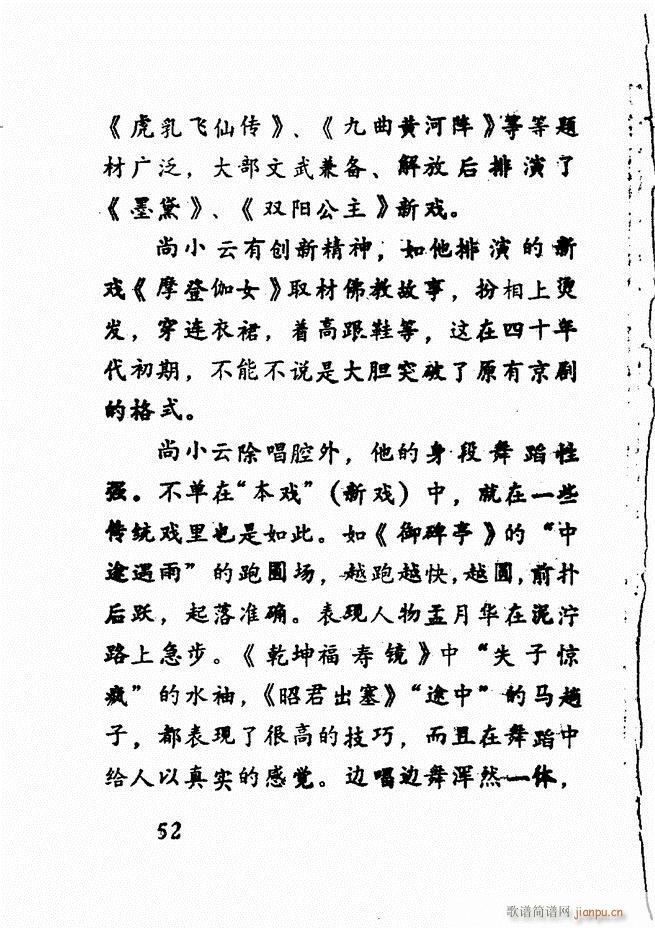 《虎乳飞仙传》、《九曲黄河阵》等等题
材广泛，大部文武兼备、解放后排演了
《墨黛》、《双阳公主》新戏。
尚小云有创新精神，如他排演的新
戏《摩登伽女》取材佛教故事，扮相上烫
发，穿连衣裙，着高跟鞋等，这在四十年
代初期，不能不说是大胆突破了原有京剧
的格式。
尚小云除唱腔外，他的身段舞蹈性
强。不单在“本戏”(新戏)中，就在一些
传统戏里也是如此。如《御碑亭》的“中
途遇雨”的跑圆场，越跑越快，越圆，前扑
后跃，起落准确。表现人物孟月华在泥泞
路上急步。《乾坤福寿镜》中“失子惊
疯”的水袖，《昭君出塞》“途中”的马趟
子，都表现了很高的技巧，而且在舞蹈中
给人以真实的感觉。边唱边舞浑然一体，
52
歌谱简谱网 jianpu.cn